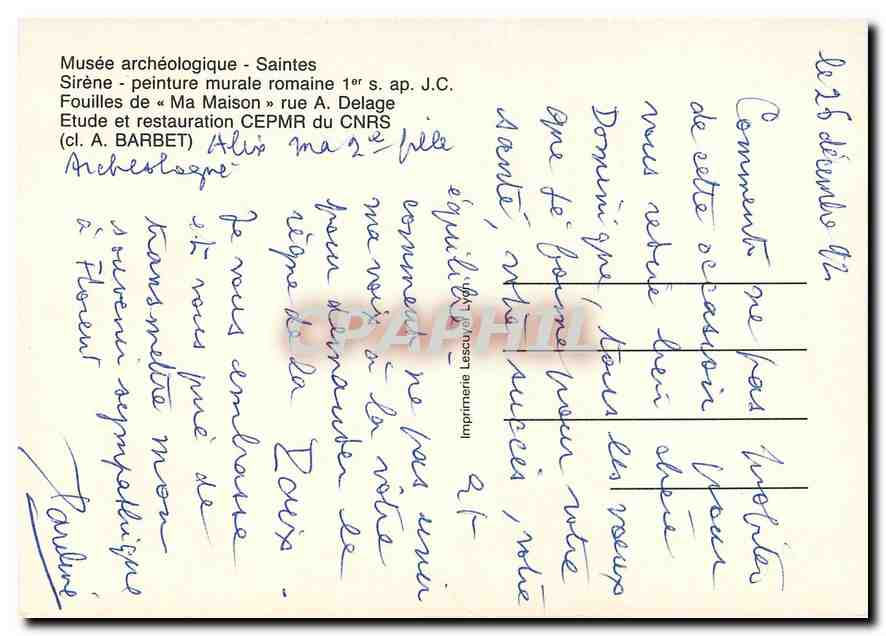 Musée archéologique - Saintes
Sirène - peinture murale romaine 1er s. ap. J.C.
Fouilles de « Ma Maison » rue A. Delage
Etude et restauration CEPMR du CNRS
(cl. A. BARBET) Alix ma 2e fille
Archéologue
le 26 décembre 92
Comment ne pas profiter
de cette occasion pour
vous redire bien chère
Dominique, tous les voeux
que je forme pour votre
santé, votre succès, votre
équilibre - et
comment ne pas unir
ma voix à la vôtre
pour demander le
règne de la Paix.
Je vous embrasse
et vous prie de
transmettre mon
souvenir sympathique
à Florent
Imprimerie Lescuyer Lyon
CPAPHIL